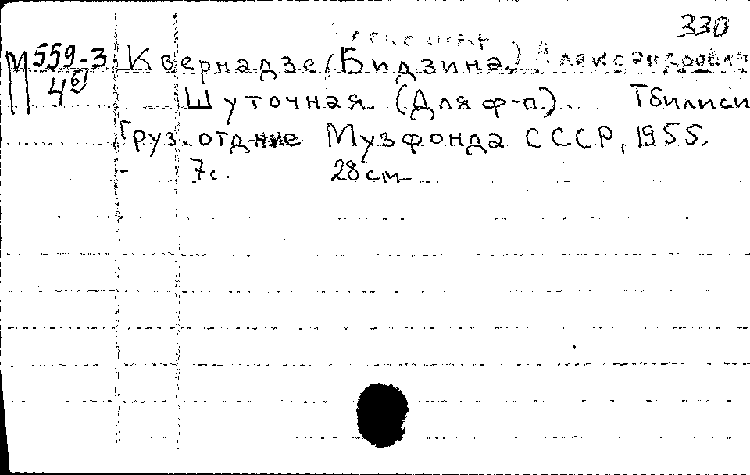 330
М 559-3 Квернадзе (Бидзина) Александрович
4
Шуточная (Для ф-п.) Тбилиси
Груз. отд-ние Музфонда СССР, 1955.
- 7с. 28см